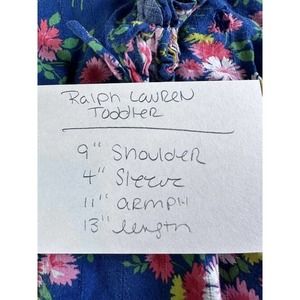 Ralph Lauren
Toddler
9" Shoulder
4" Sleeve
11" armpit
13" length